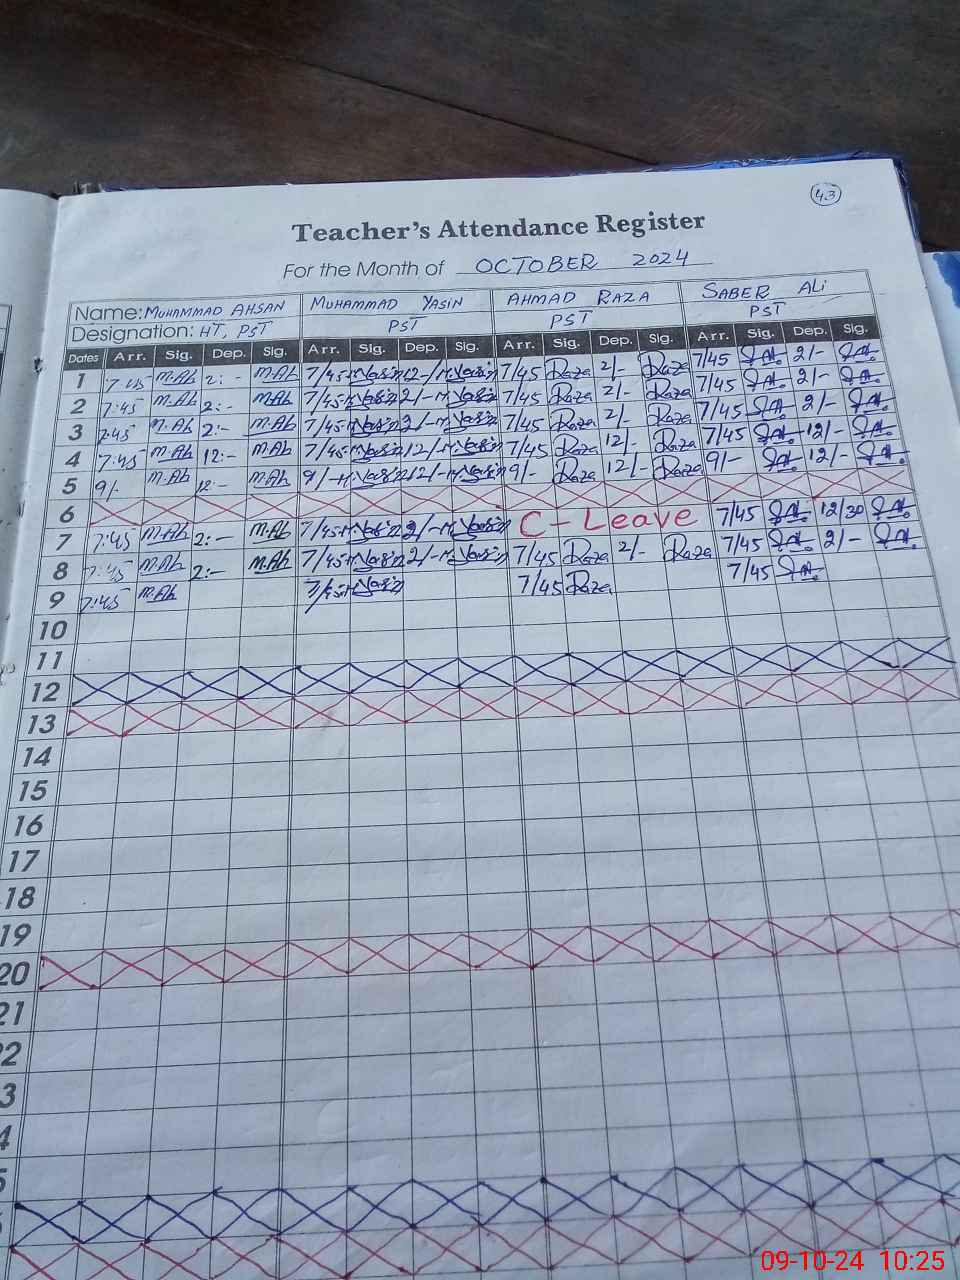 43
Teacher's Attendance Register
For the Month of OCTOBER 2024
Name: MUHAMMAD AHSAN MUHAMMAD YASIN AHMAD RAZA SABER ALi
Designation: HT, PST PST PST PST
Dates Arr. Sig. Dep. Sig. Arr. Sig. Dep. Sig. Arr. Sig. Dep. Sig. Arr. Sig. Dep. Sig.
1 7:45 M.Ah 2:- M.Ah 7/45 M.Yasin 12/- M.Yasin 7/45 Raza 2/- Raza 7/45 2/-
2 7:45 M.Ah 2:- M.Ah 7/45 M.Yasin 2/- M.Yasin 7/45 Raza 2/- Raza 7/45 2/-
3 7:45 M.Ah 2:- M.Ah 7/45 M.Yasin 2/- M.Yasin 7/45 Raza 2/- Raza 7/45 2/-
4 7:45 M.Ah 12:- M.Ah 7/45 M.Yasin 12/- M.Yasin 7/45 Raza 12/- Raza 7/45 12/-
5 9/- M.Ah 12:- M.Ah 9/- M.Yasin 12/- M.Yasin 9/- Raza 12/- Raza 9/- 12/-
6
7 7:45 M.Ah 2:- M.Ah 7/45 M.Yasin 2/- M.Yasin C-Leave 7/45 12/30
8 7:45 M.Ah 2:- M.Ah 7/45 M.Yasin 2/- M.Yasin 7/45 Raza 2/- Raza 7/45 2/-
9 7:45 M.Ah 7/45 M.Yasin 7/45 Raza 7/45
10
11
12
13
14
15
16
17
18
19
20
21
2
3
4
5
09-10-24 10:25